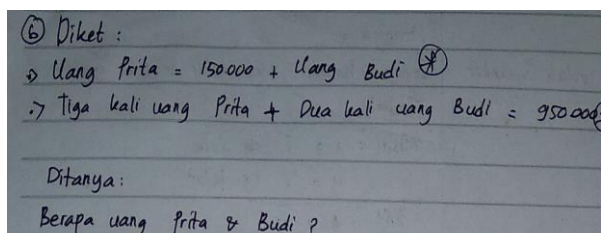 ⑥ Diket :
→ Uang Prita = 150.000 + Uang Budi *
→ Tiga kali uang Prita + Dua kali uang Budi = 950.000
Ditanya :
Berapa uang Prita & Budi ?